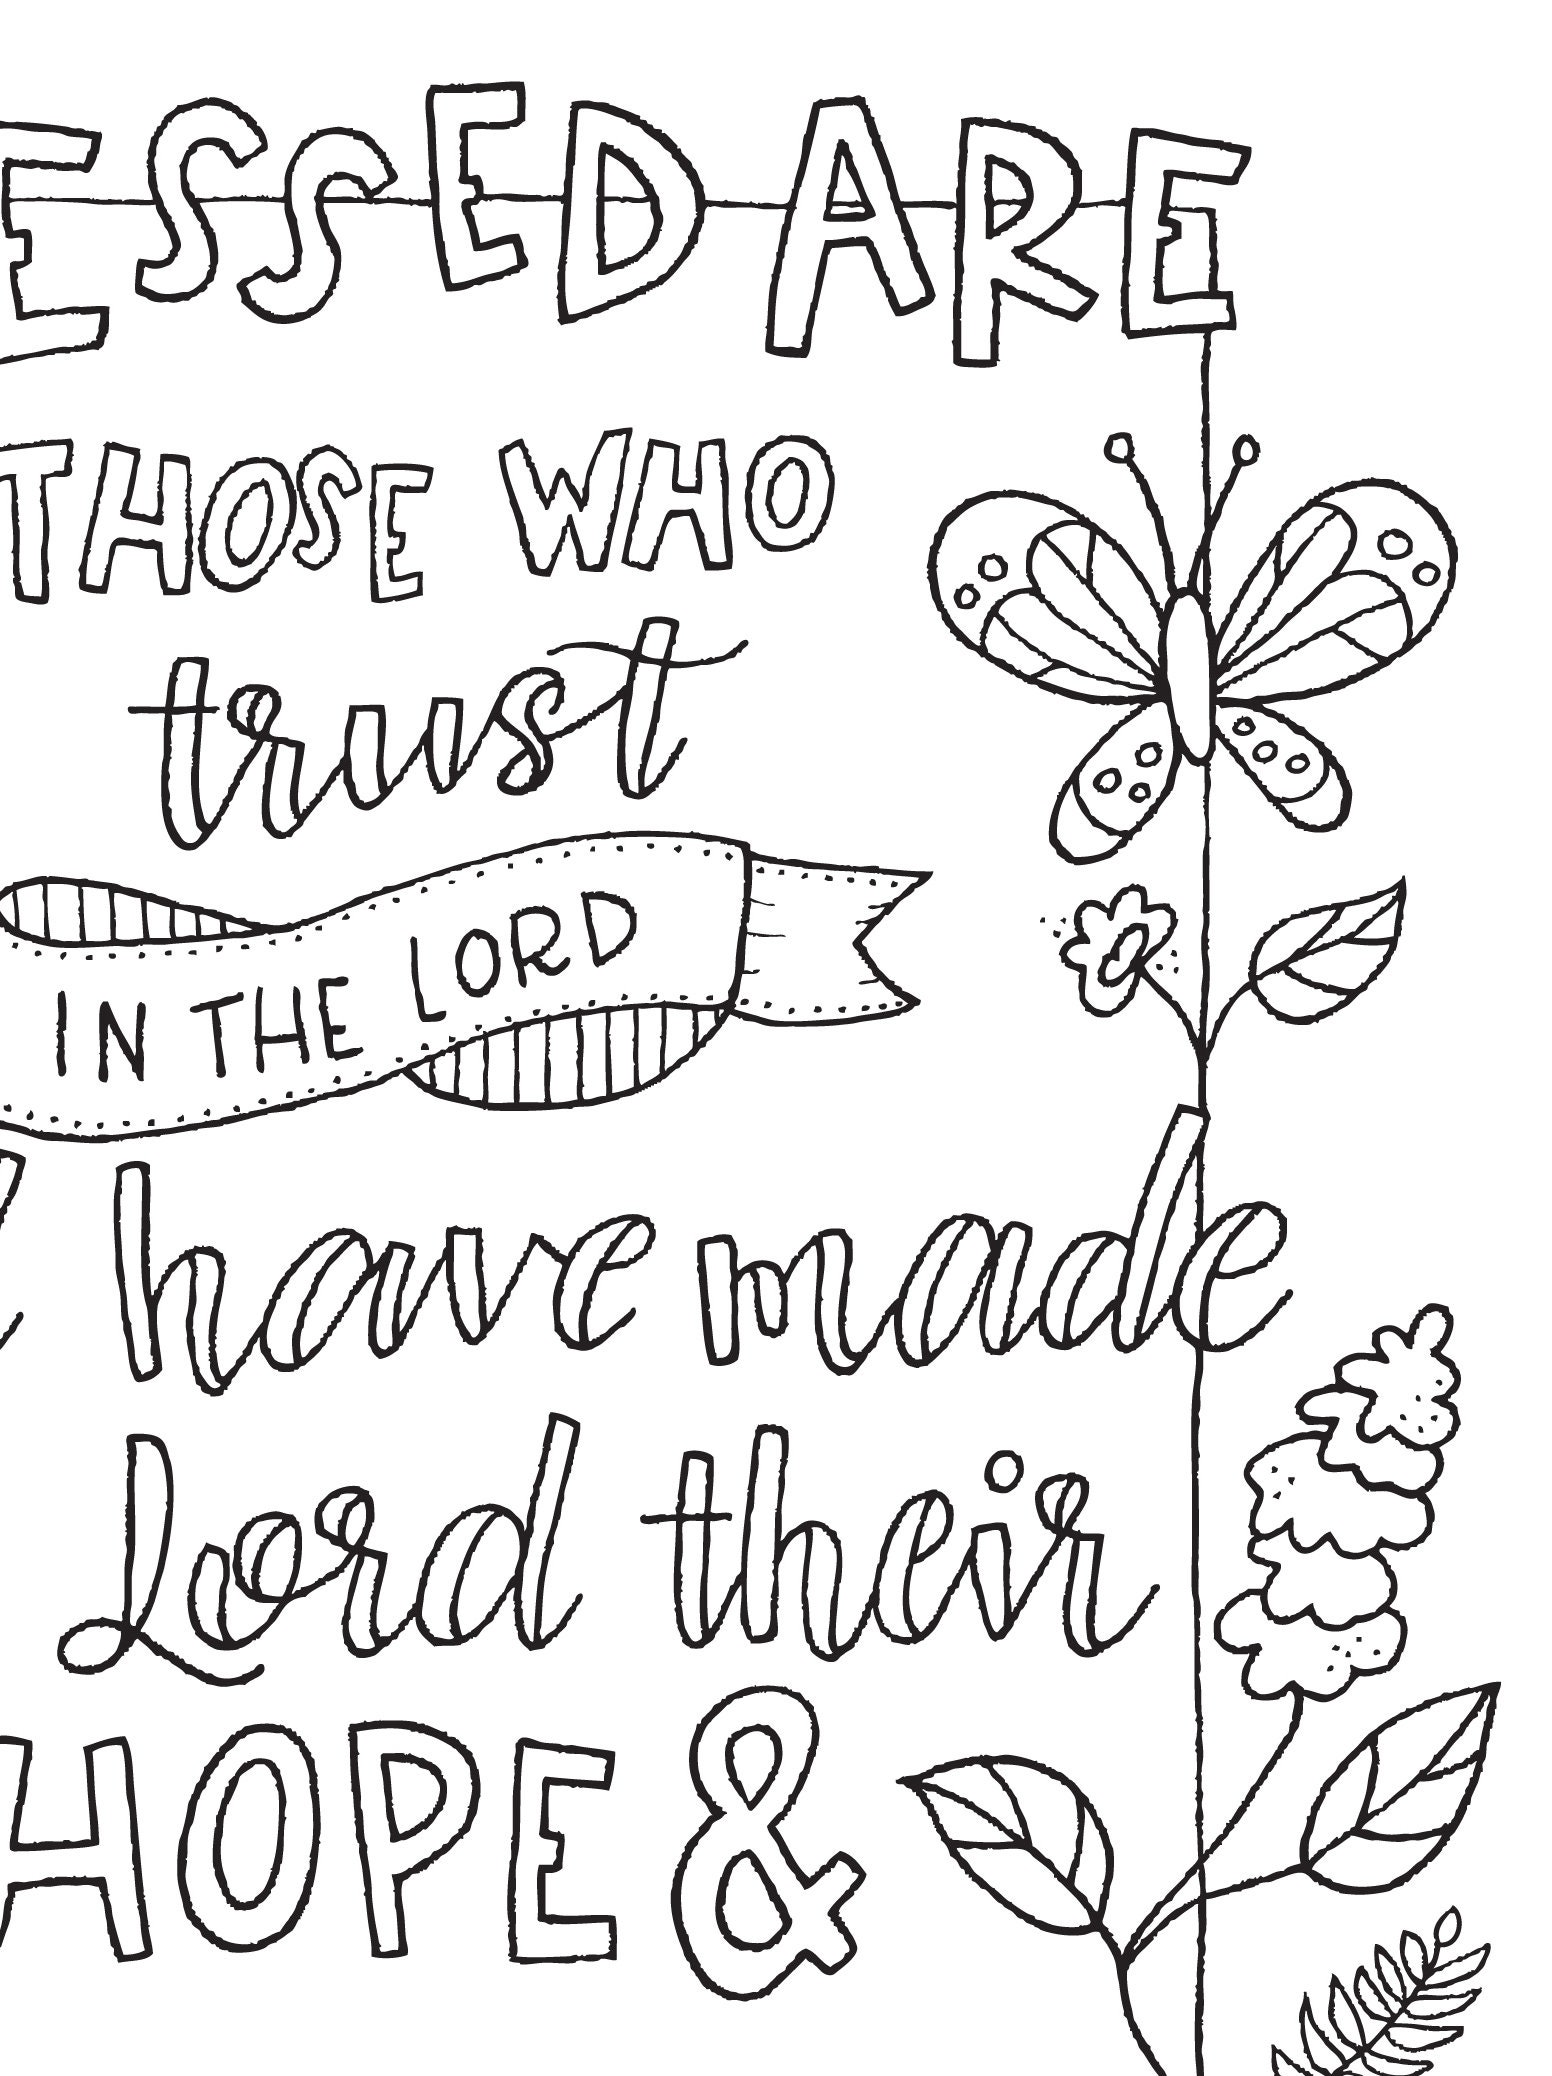 ESSED ARE
THOSE WHO
trust
IN THE LORD
have made
Lord their
HOPE &